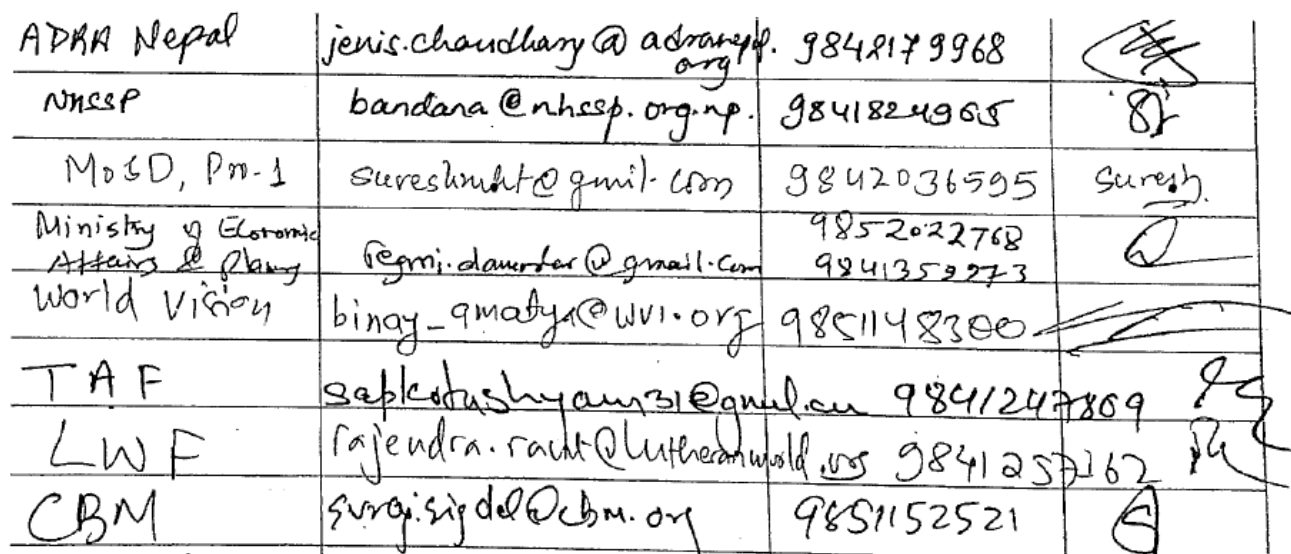 ADRA Nepal jenis.chaudhary@adranepal.org 9848179968
NHSSP bandana@nhssp.org.np. 9841824965
MoSD, Pro-1 sureshmht@gmil.com 9842036595 Suresh
Ministry of Economic 9852022768
Affairs & Planng regmi.damodar@gmail.com 9841359273
World Vision binay_amatya@wvi.org 9851148300
TAF sapkotashyam31@gmail.com 9841247869
LWF rajendra.raut@lutheranworld.org 9841257162
CBM suraj.sigdel@cbm.org 9851152521